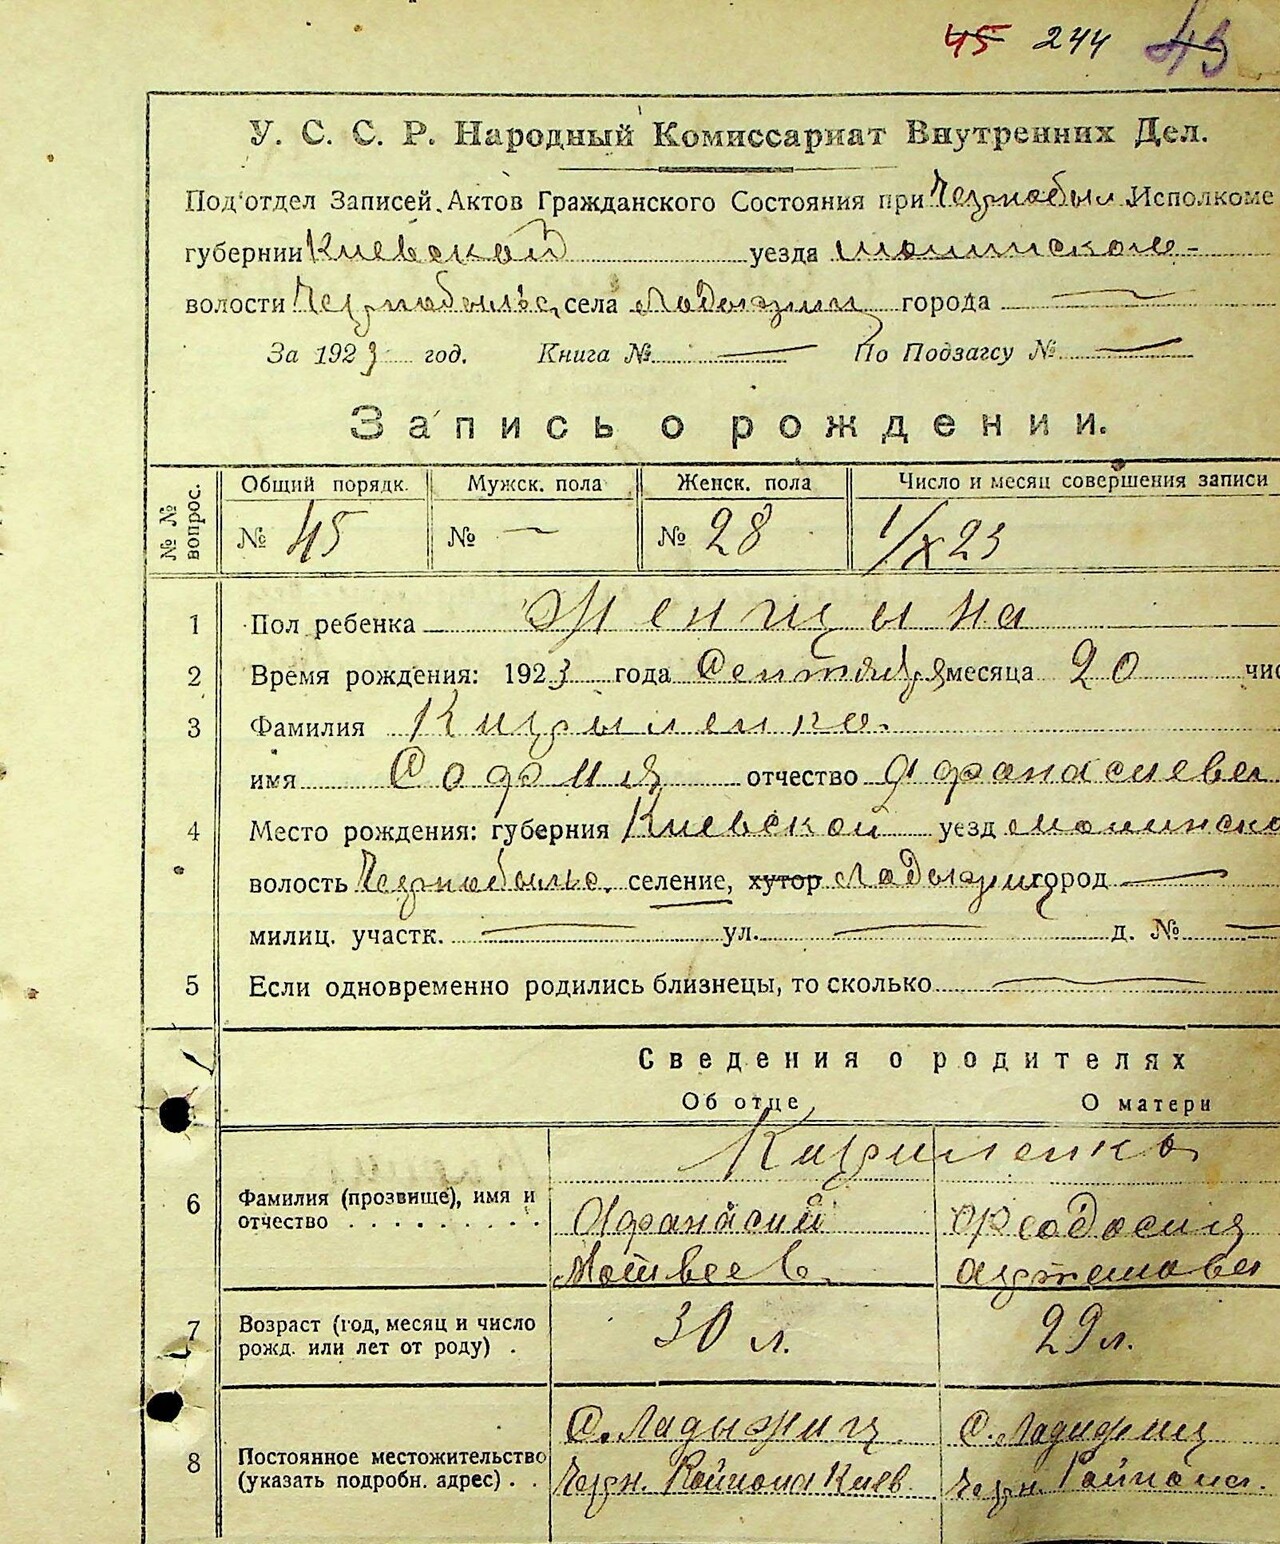 45 244 43
У. С. С. Р. Народный Комиссариат Внутренних Дел.
Под'отдел Записей Актов Гражданского Состояния при Чернобыл. Исполкоме
губернии Киевской уезда
волости Чернобыльс. села Ладыжичи города —
За 1923 год. Книга № — По Подзагсу № —
Запись о рождении.
№ № вопрос.
Общий порядк. Мужск. пола Женск. пола Число и месяц совершения записи
№ 45 № — № 28 1/X 23
1 Пол ребенка Женщына
2 Время рождения: 1923 года Сентября месяца 20 чис
3 Фамилия Кирыленко.
имя София отчество Афанасиевна
4 Место рождения: губерния Киевской уезд
волость Чернобыльс. селение, хутор Ладыжичи город —
милиц. участк. — ул. — д. № —
5 Если одновременно родились близнецы, то сколько —
Сведения о родителях
Об отце О матери
Кириленко
6 Фамилия (прозвище), имя и отчество . . . . . . . . . .
Афанасий Феодосия
Матвеев Артемовна
7 Возраст (год, месяц и число рожд. или лет от роду) .
30 л. 29 л.
8 Постоянное местожительство (указать подробн. адрес) . .
С. Ладыжич С. Ладижич
Черн. Района Киев. Черн. Района.